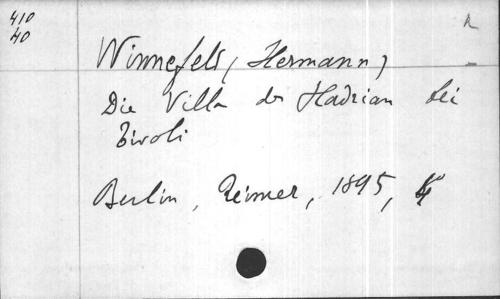 410
40
R
Winnefeld, (Hermann)
Die Villa des Hadrian bei
Tivoli
Berlin, Reimer, 1895, 4°